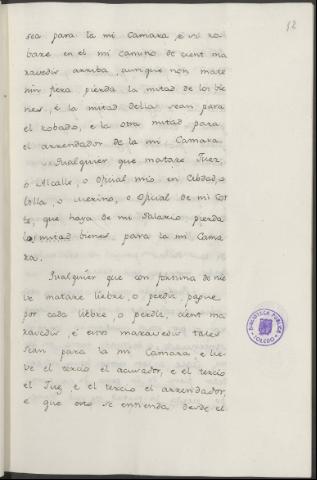 52
sea para la mi Camara, é si ro-
bare en el mi camino de cient ma-
ravedis arriba, aunque non mate
nin fiera pierda la mitad de los bie
nes, é la mitad della sean para
el robado, e la otra mitad para
el arrendador de la mi Camara.
Qualquier que matare Juez,
o Alcalle, o oficial mio en Cibdad, o
Villa, o Merino, o oficial de mi Cor
te, que haya de mi salario pierda
la mitad bienes, para la mi Cama
ra.
Qualquier que con fortuna de nie
ve matare liebre, o perdiz, pague
por cada liebre, o perdiz, cient ma
ravedis, é estos maravedis tales
sean para la mi Camara, e lie-
ve el tercio el acusador, e el tercio
el Juez, e el tercio el arrendador,
e que esto se entienda desde el
BIBLIOTECA PUBLICA
TOLEDO